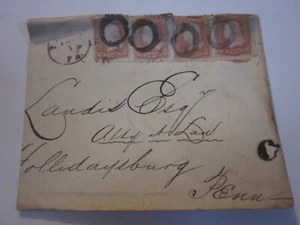 Landis Esqr
Atty at Law
Hollidaysburg
Penn